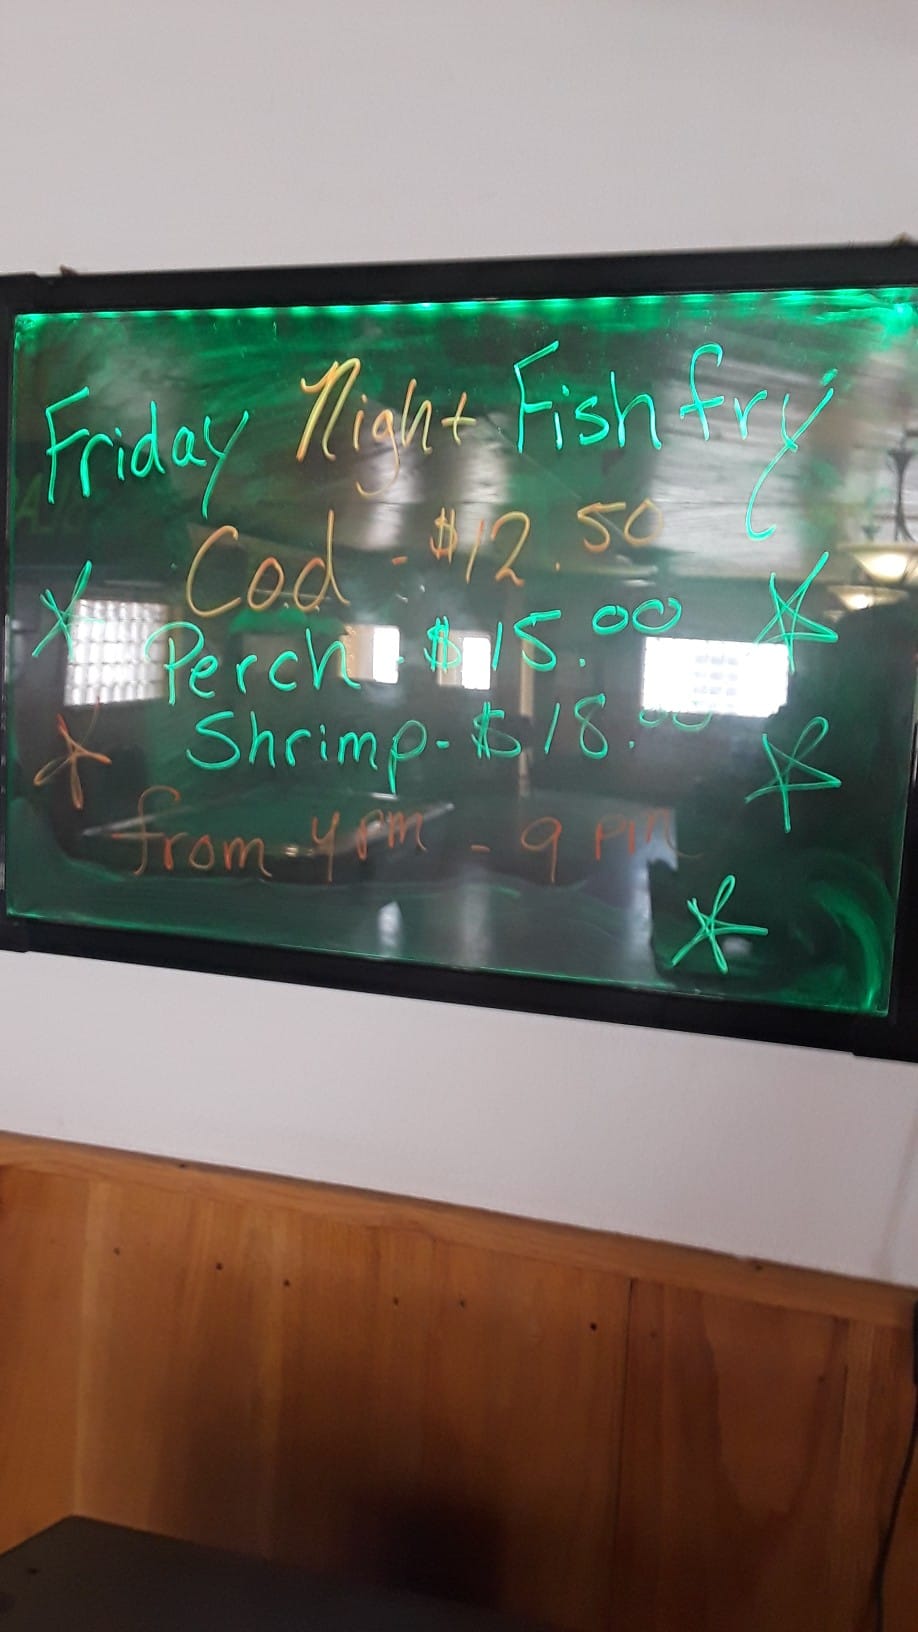 Friday Night Fish fry
Cod - $12.50
Perch - $15.00
Shrimp - $18.00
from 4pm - 9pm